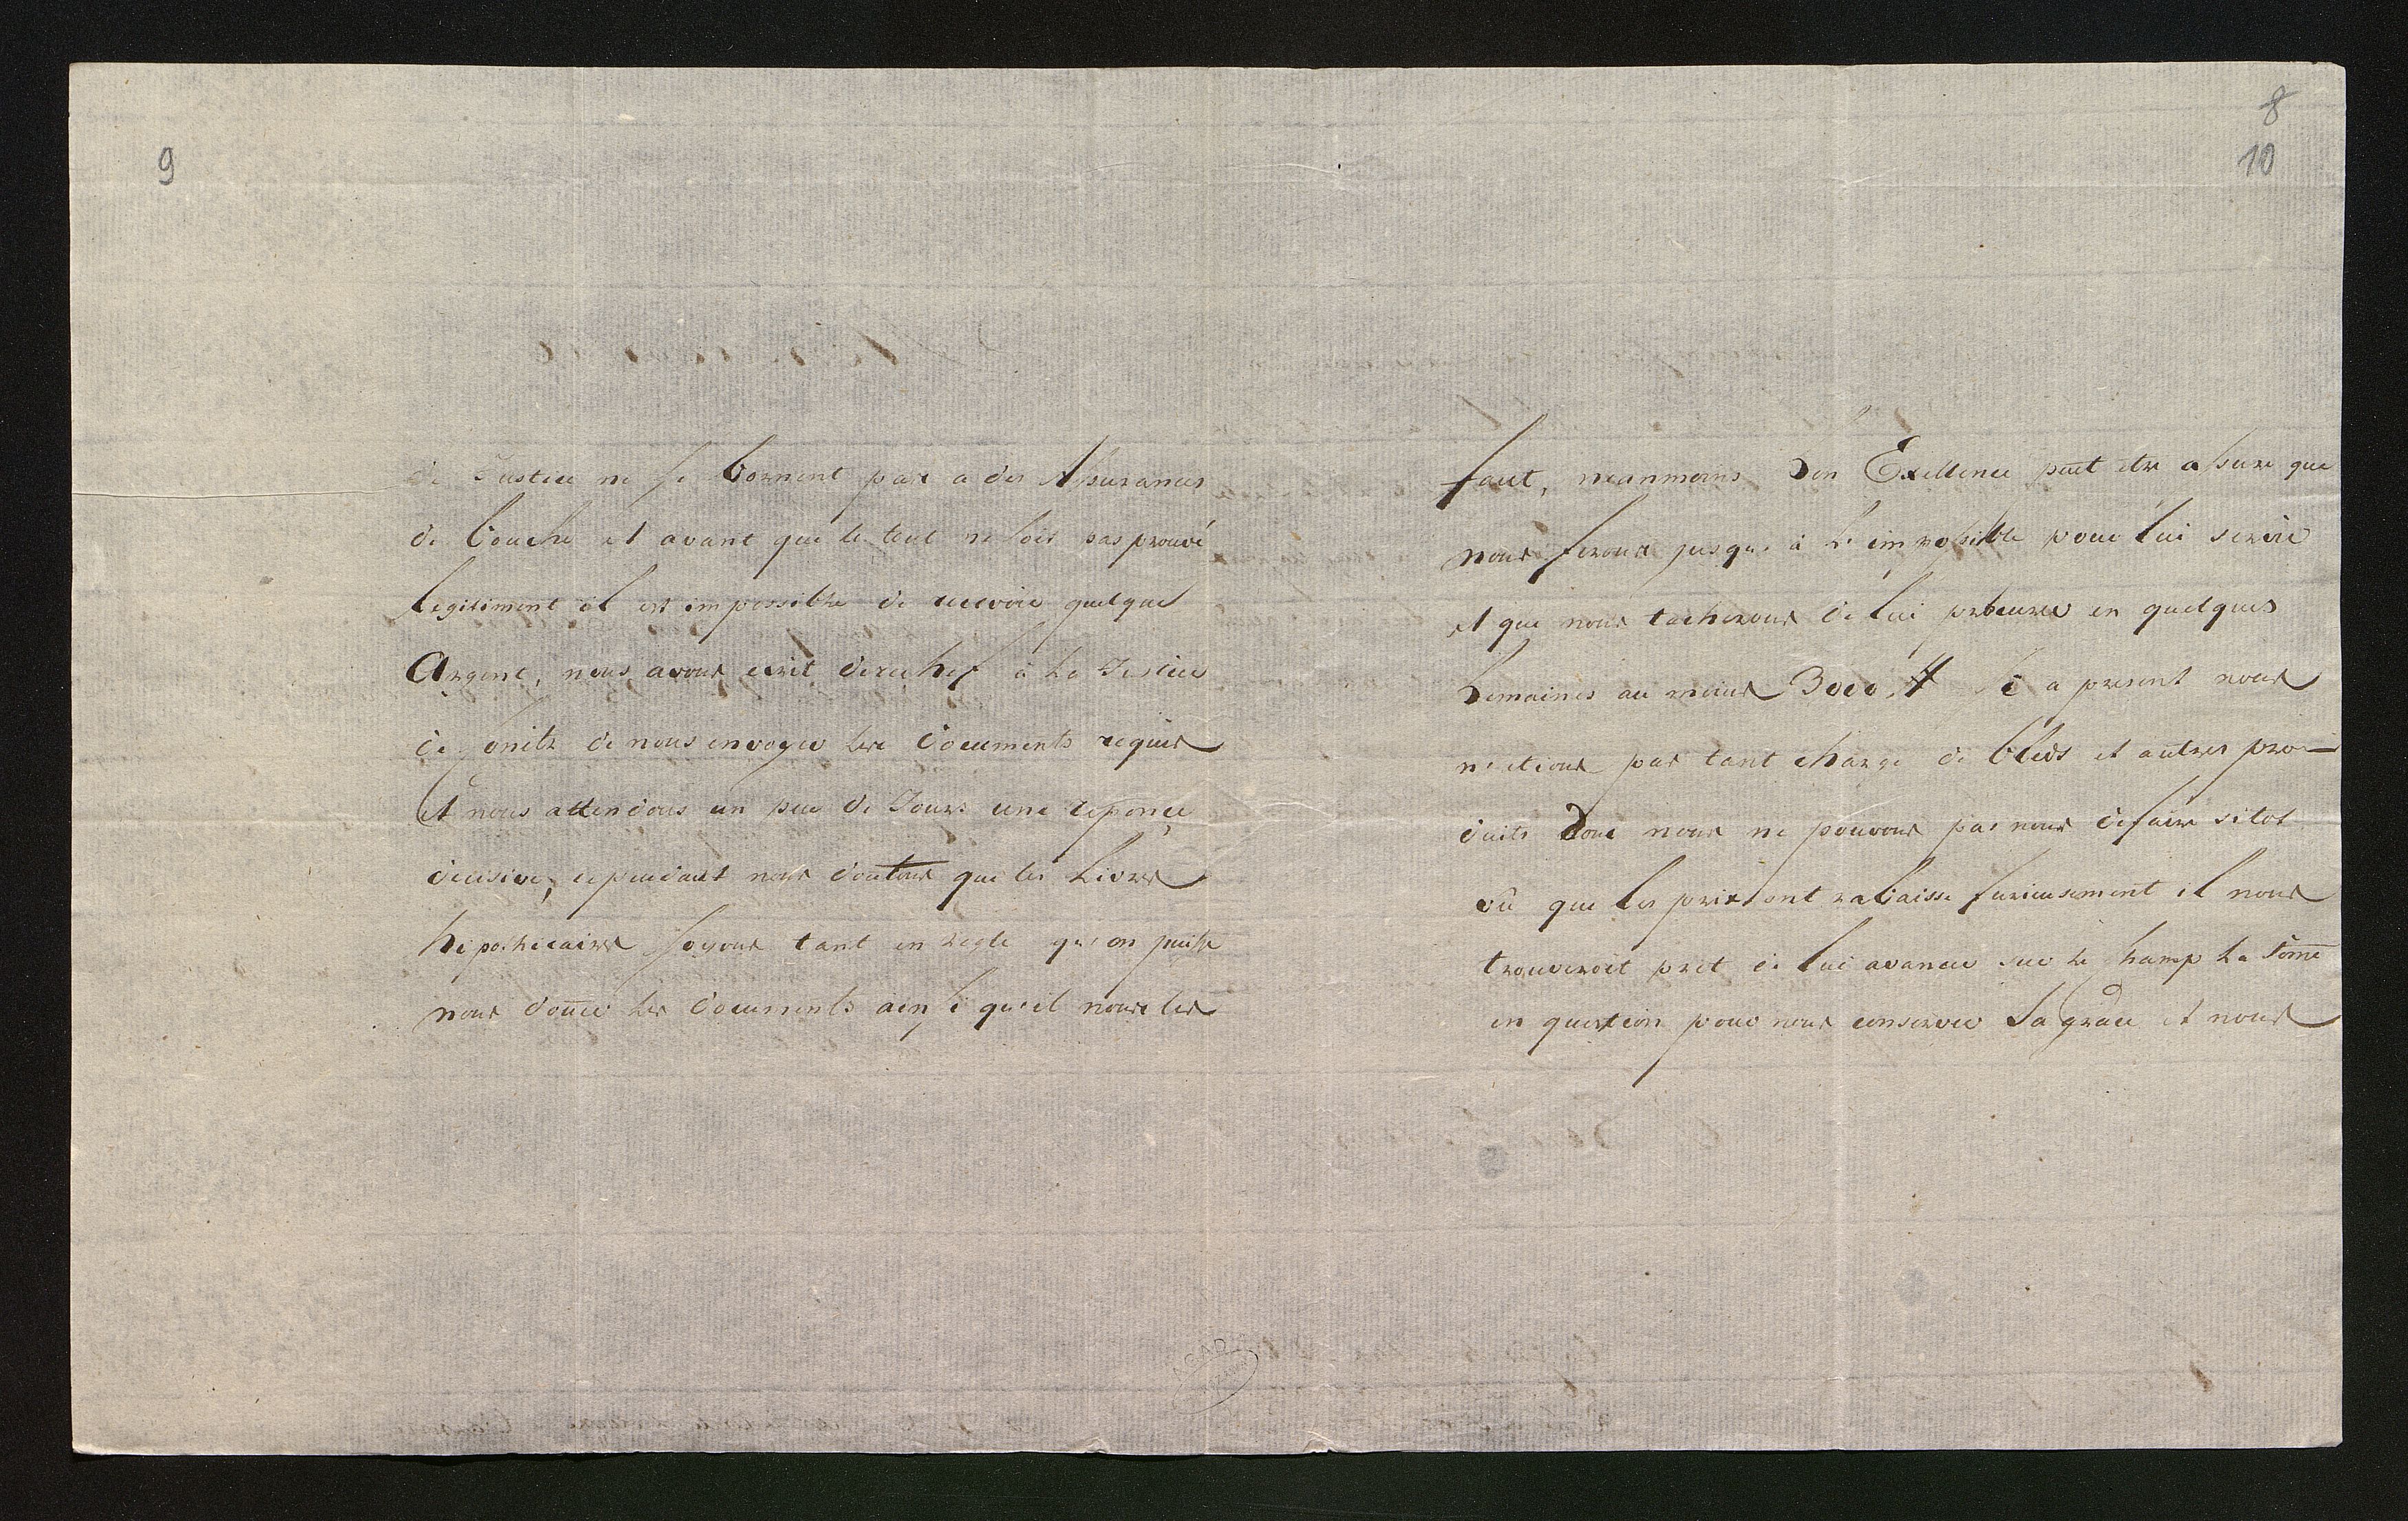 9
de Justice ne se bornent pas a des Assurances
de bouche et avant que le tout ne soit pas prouvé
legitiment il est impossible de recevoir quelque
Argent, nous avons ecrit derechef à la Justice
de de nous envoyer les documents requis
et nous attendons en peu de Jours une reponce
decisive, cependant nous doutons que les Livres
hipothecaires soyous tant en regle qu'on puisse
nous doñer les documents ainsi qu'il nous les
8
10
faut, neanmoins Son Exellence peut etre assure que
nous ferons jusqu'à l'impossible pour lui servir
et que nous tacherons de lui procurer en quelques
Semaines au moins 3000 # Si a present nous
n'etions pas tant charge de bleds et autres pro-
duits dont nous ne pouvons pas nous defaire sitot
vû que les prix sont rabaisse furieusement il nous
trouveroit pret de lui avancer sur le champ la some
en question pour nous conserver Sa grace et nous
AGAD